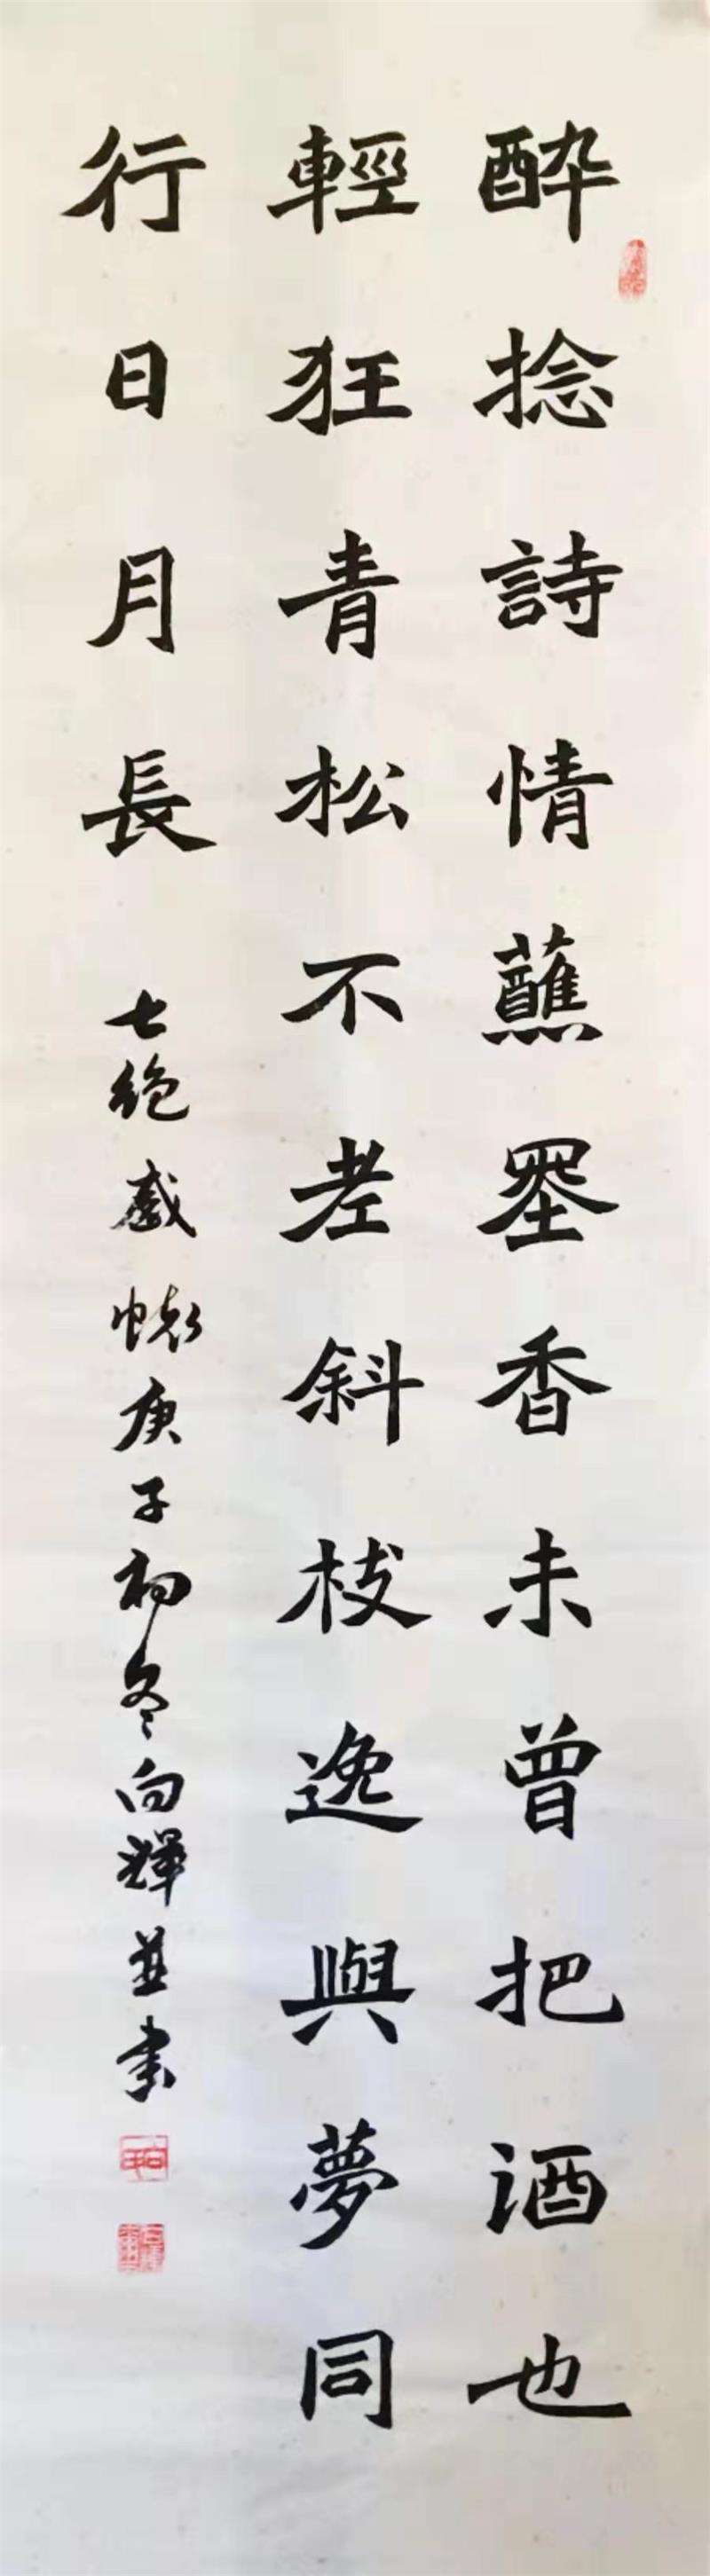 酔捻詩情蘸墨香未曾把酒也
輕狂青松不老斜枝逸與夢同
行日月長
七絶感懷庚子初冬向輝並書